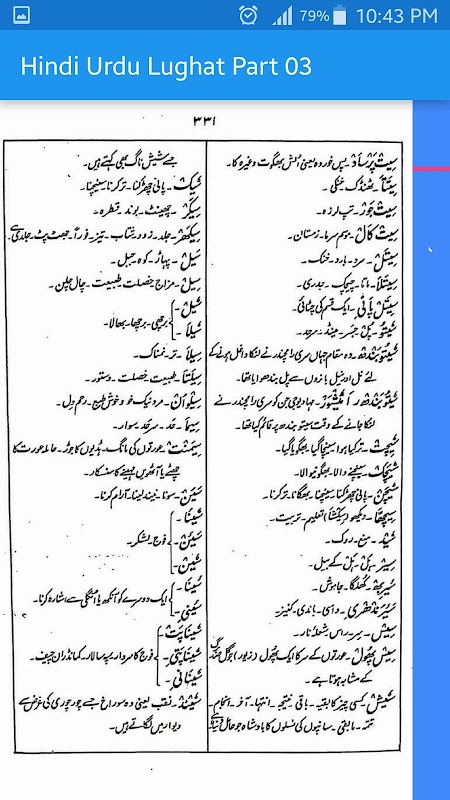 79% 10:43 PM
Hindi Urdu Lughat Part 03
۳۳۱
سیت پرساد۔ پس خوردہ یعنی اُلش بھگوت وغیرہ کا۔
سیتتا۔ ٹھنڈک۔ خنکی۔
سیت جوَر۔ تپ لرزہ۔
سیت کال۔ موسم سرما۔ زمستان۔
سیتل۔ سرد۔ بارد۔ خنک۔
سیتلا۔ ماتا۔ چیچک۔ جدری۔
سیتل پاٹی۔ ایک قسم کی چٹائی۔
سیتو۔ پُل۔ جسر۔ مینڈ۔ سرحد۔
سیتو بندھ۔ وہ مقام جہاں سری رامچندر نے لنکا داخل ہونے کے
لئے نل اور نیل بانروں سے پل بندھوایا تھا۔
سیتو بندھ رامیشور۔ مہادیو جی جن کو سری رامچندر نے
لنکا جانے کے وقت سیتو بندھ پر قائم کیا تھا۔
سینچت۔ تر کیا ہوا۔ سینچا گیا۔ بھگویا گیا۔
سینچک۔ سینچنے والا۔ بھگونیوالا۔
سینچن۔ پانی چھڑکنا۔ سینچنا۔ بھگانا۔ تر کرنا۔
سیچھا۔ دیکھو (سیکشا) تعلیم۔ تربیت۔
سیدھ۔ منع۔ روک۔
سیر۔ ہل۔ ہل کے بیل۔
سیربھ۔ گھُلگا۔ جاموش۔
سیرندھری۔ داسی۔ باندی۔ کنیز۔
سیس۔ سر۔ راس۔
سیس پھول۔ عورتوں کے سر کا ایک پھول (زیور) جو گل
کے مشابہ ہوتا ہے۔
شیش۔ کسی چیز کا بقیہ۔ باقی۔ نتیجہ۔ انتہا۔ آخر۔ انجام۔
تتمہ۔ مابقی۔ سانپوں کی نسلوں کا بادشاہ جو حامل
جسے شیش ناگ بھی کہتے ہیں۔
سیک۔ پانی چھڑکنا۔ تر کرنا۔ سینچنا۔
سیکر۔ چھینٹ۔ بوند۔ قطرہ۔
سیکھر۔ جلد۔ زود۔ شتاب۔ تیز۔ فوراً۔ جھٹ پٹ۔ جلدی سے۔
سیل۔ پہاڑ۔ کوہ۔ جبل۔
سیل۔ مزاج۔ خصلت۔ طبیعت۔ چال چلن۔
سیل۔
سیلا۔ برچھی۔ برچھا۔ بھالا۔
سیلا۔ تر۔ نمناک۔
سیلتا۔ طبیعت۔ خصلت۔ دستور۔
سیلوان۔ مرد نیک خو و خوش طبع۔ رحم دل۔
سیما۔ حد۔ سرحد۔ سوار۔
سیمنت۔ عورتوں کی مانگ۔ ہڈیوں کا جوڑ۔ حاملہ عورت کا
چھٹے یا آٹھویں مہینے کا سنسکار۔
سین۔ سونا۔ نیند لینا۔ آرام کرنا۔
سینا۔
سین۔ فوج۔ لشکر۔
سین۔
سینا۔
سینی۔ ایک دوسرے کو آنکھ یا انگلی سے اشارہ کرنا۔
سیناپت۔
سیناپتی۔ فوج کا سردار۔ سپہ سالار۔ کمانڈران چیف۔
سینانی۔
سیند۔ نقب یعنی وہ سوراخ جسے چور چوری کی غرض سے
دیوار میں لگاتے ہیں۔